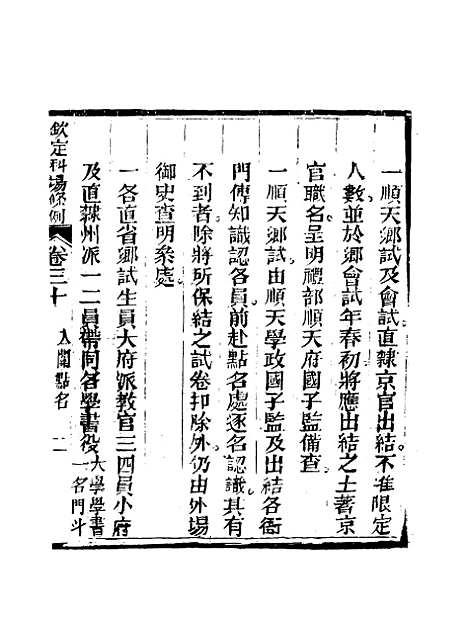 一順天鄉試及會試直隸京官出結不准限定
人數並於鄉會試年春初將應出結之土著京
官職名呈明禮部順天府國子監備查
一順天鄉試由順天學政國子監及出結各衙
門傳知識認各員前赴點名處逐名認識其有
不到者除將所保結之試卷扣除外仍由外場
御史查明叅處
一各直省鄉試生員大府派教官三四員小府
及直隸州派一二員帶同各學書役大學學書一名門斗
欽定科場條例 卷三十 入闈點名 二